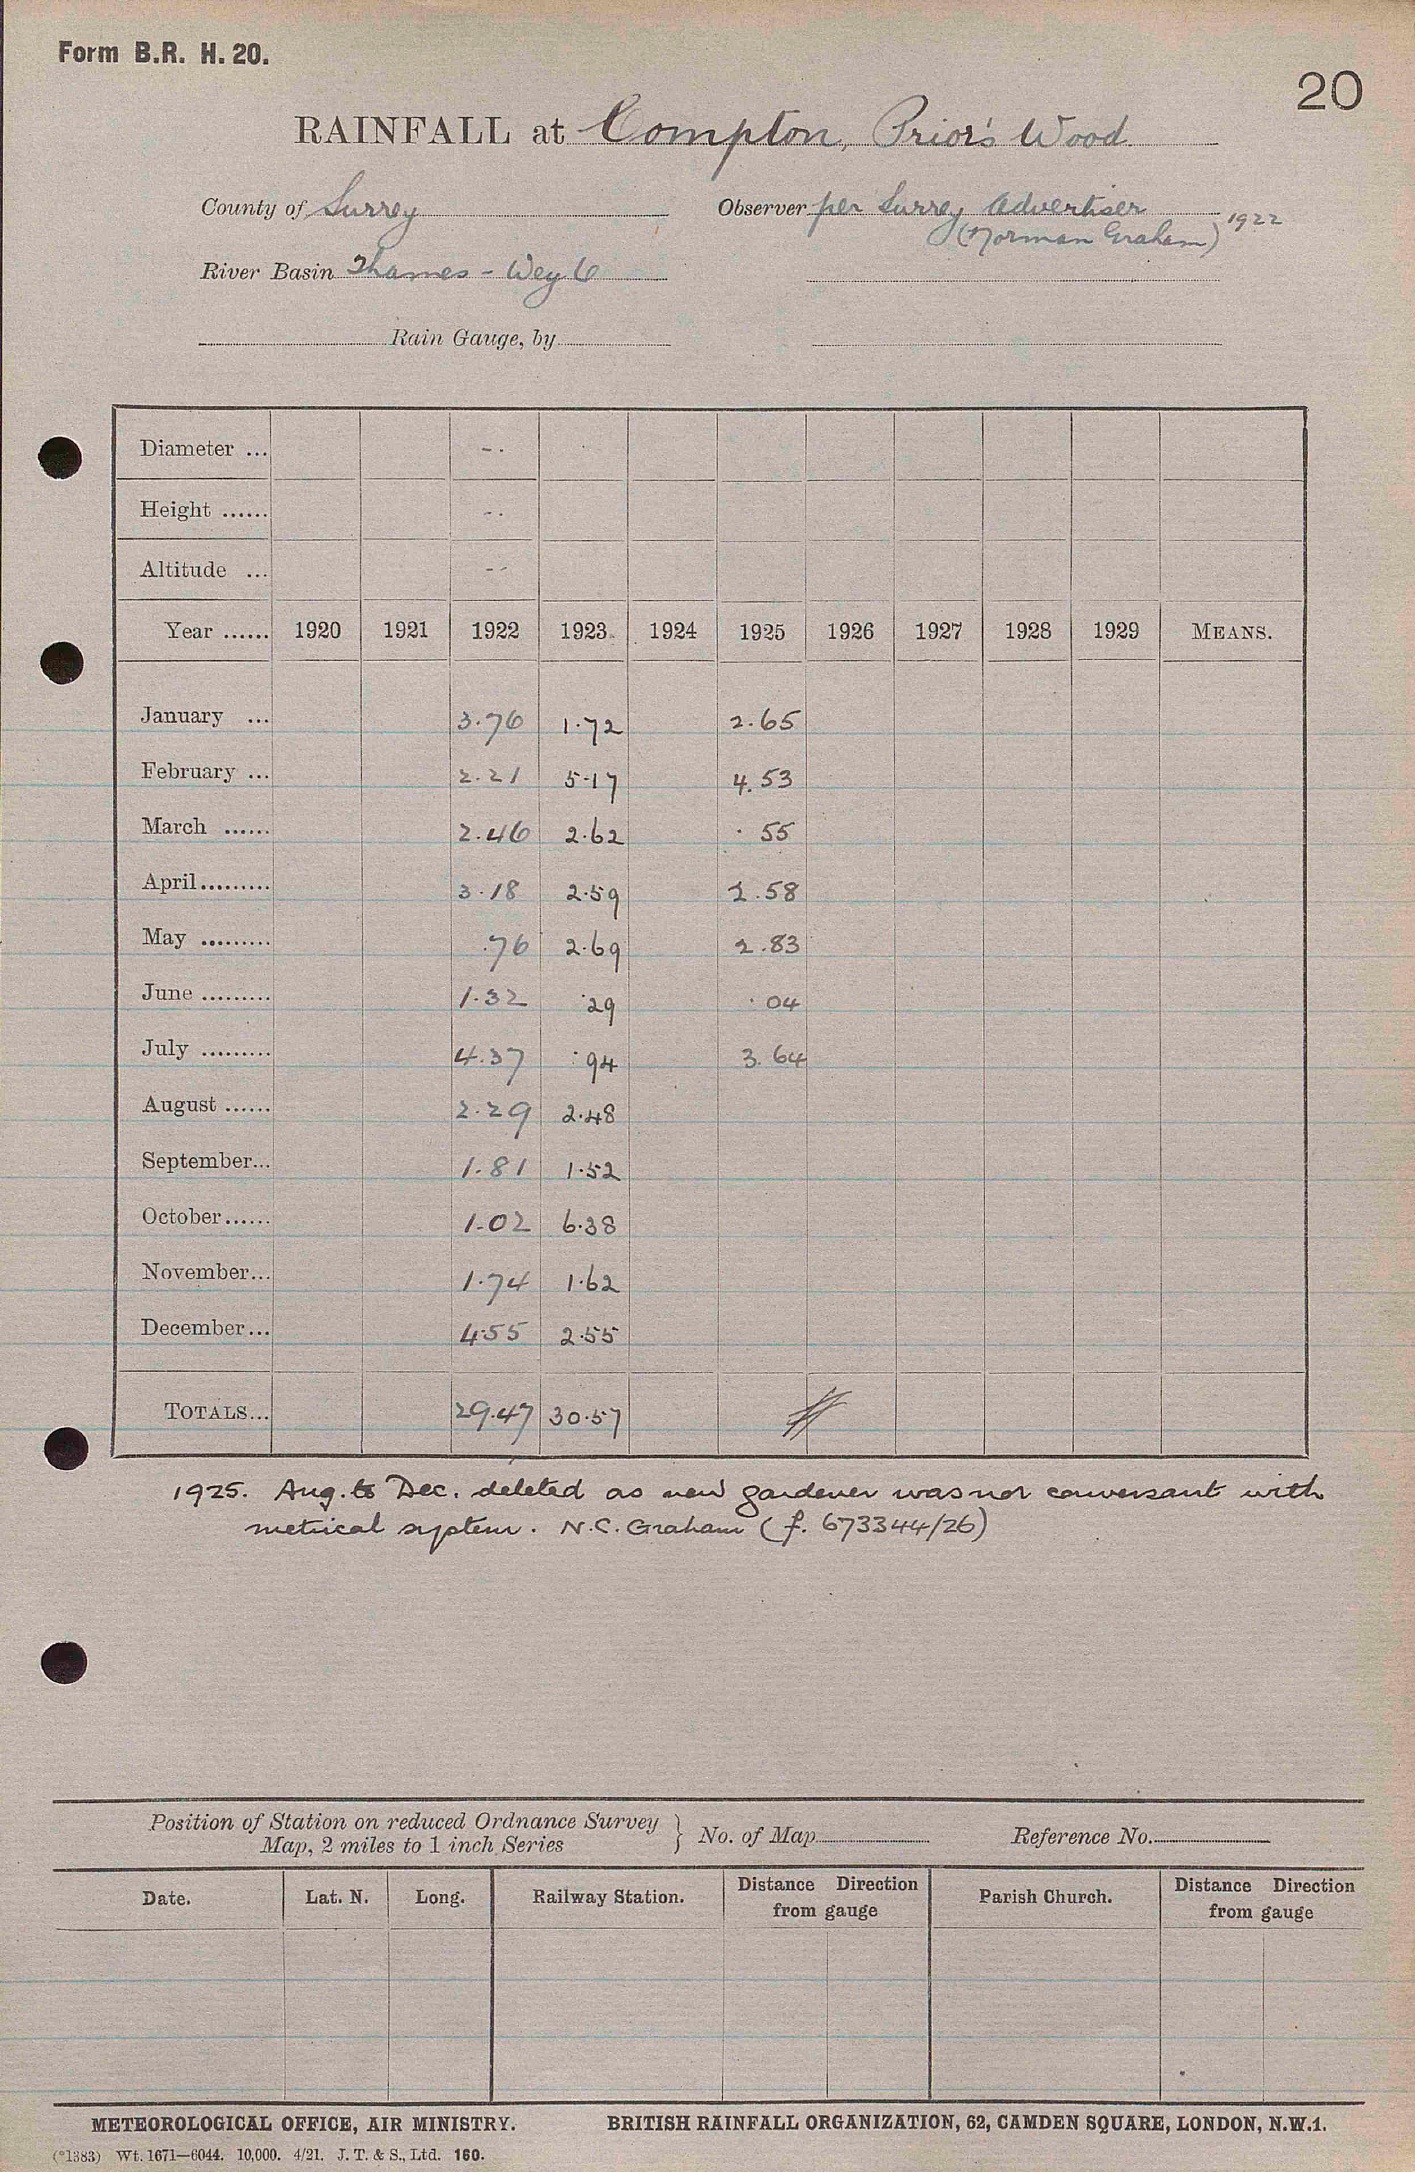 Form B.R. H. 20.
20
RAINFALL at Compton, Prior's Wood
County of Surrey
Observer per Surrey Advertiser 1922
(Norman Graham)
River Basin Thames - Wey 6
Rain Gauge, by
Diameter ... - .
Height ...... - .
Altitude ... - -
Year ...... 1920 1921 1922 1923 1924 1925 1926 1927 1928 1929 MEANS.
January ... 3.76 1.72 2.65
February ... 2.21 5.17 4.53
March ...... 2.46 2.62 .55
April ......... 3.18 2.59 1.58
May ......... .76 2.69 2.83
June ......... 1.32 .29 .04
July ......... 4.37 .94 3.64
August ...... 2.29 2.48
September... 1.81 1.52
October...... 1.02 6.38
November... 1.74 1.62
December... 4.55 2.55
TOTALS... 29.47 30.57
1925. Aug. to Dec. deleted as new gardener was not conversant with
metrical system. N.C. Graham (f. 673344/26)
Position of Station on reduced Ordnance Survey
Map, 2 miles to 1 inch Series
} No. of Map Reference No.
Date. Lat. N. Long. Railway Station. Distance Direction from gauge Parish Church. Distance Direction from gauge
METEOROLOGICAL OFFICE, AIR MINISTRY. BRITISH RAINFALL ORGANIZATION, 62, CAMDEN SQUARE, LONDON, N.W.1.
(*1383) Wt. 1671—6044. 10,000. 4/21. J. T. & S., Ltd. 160.